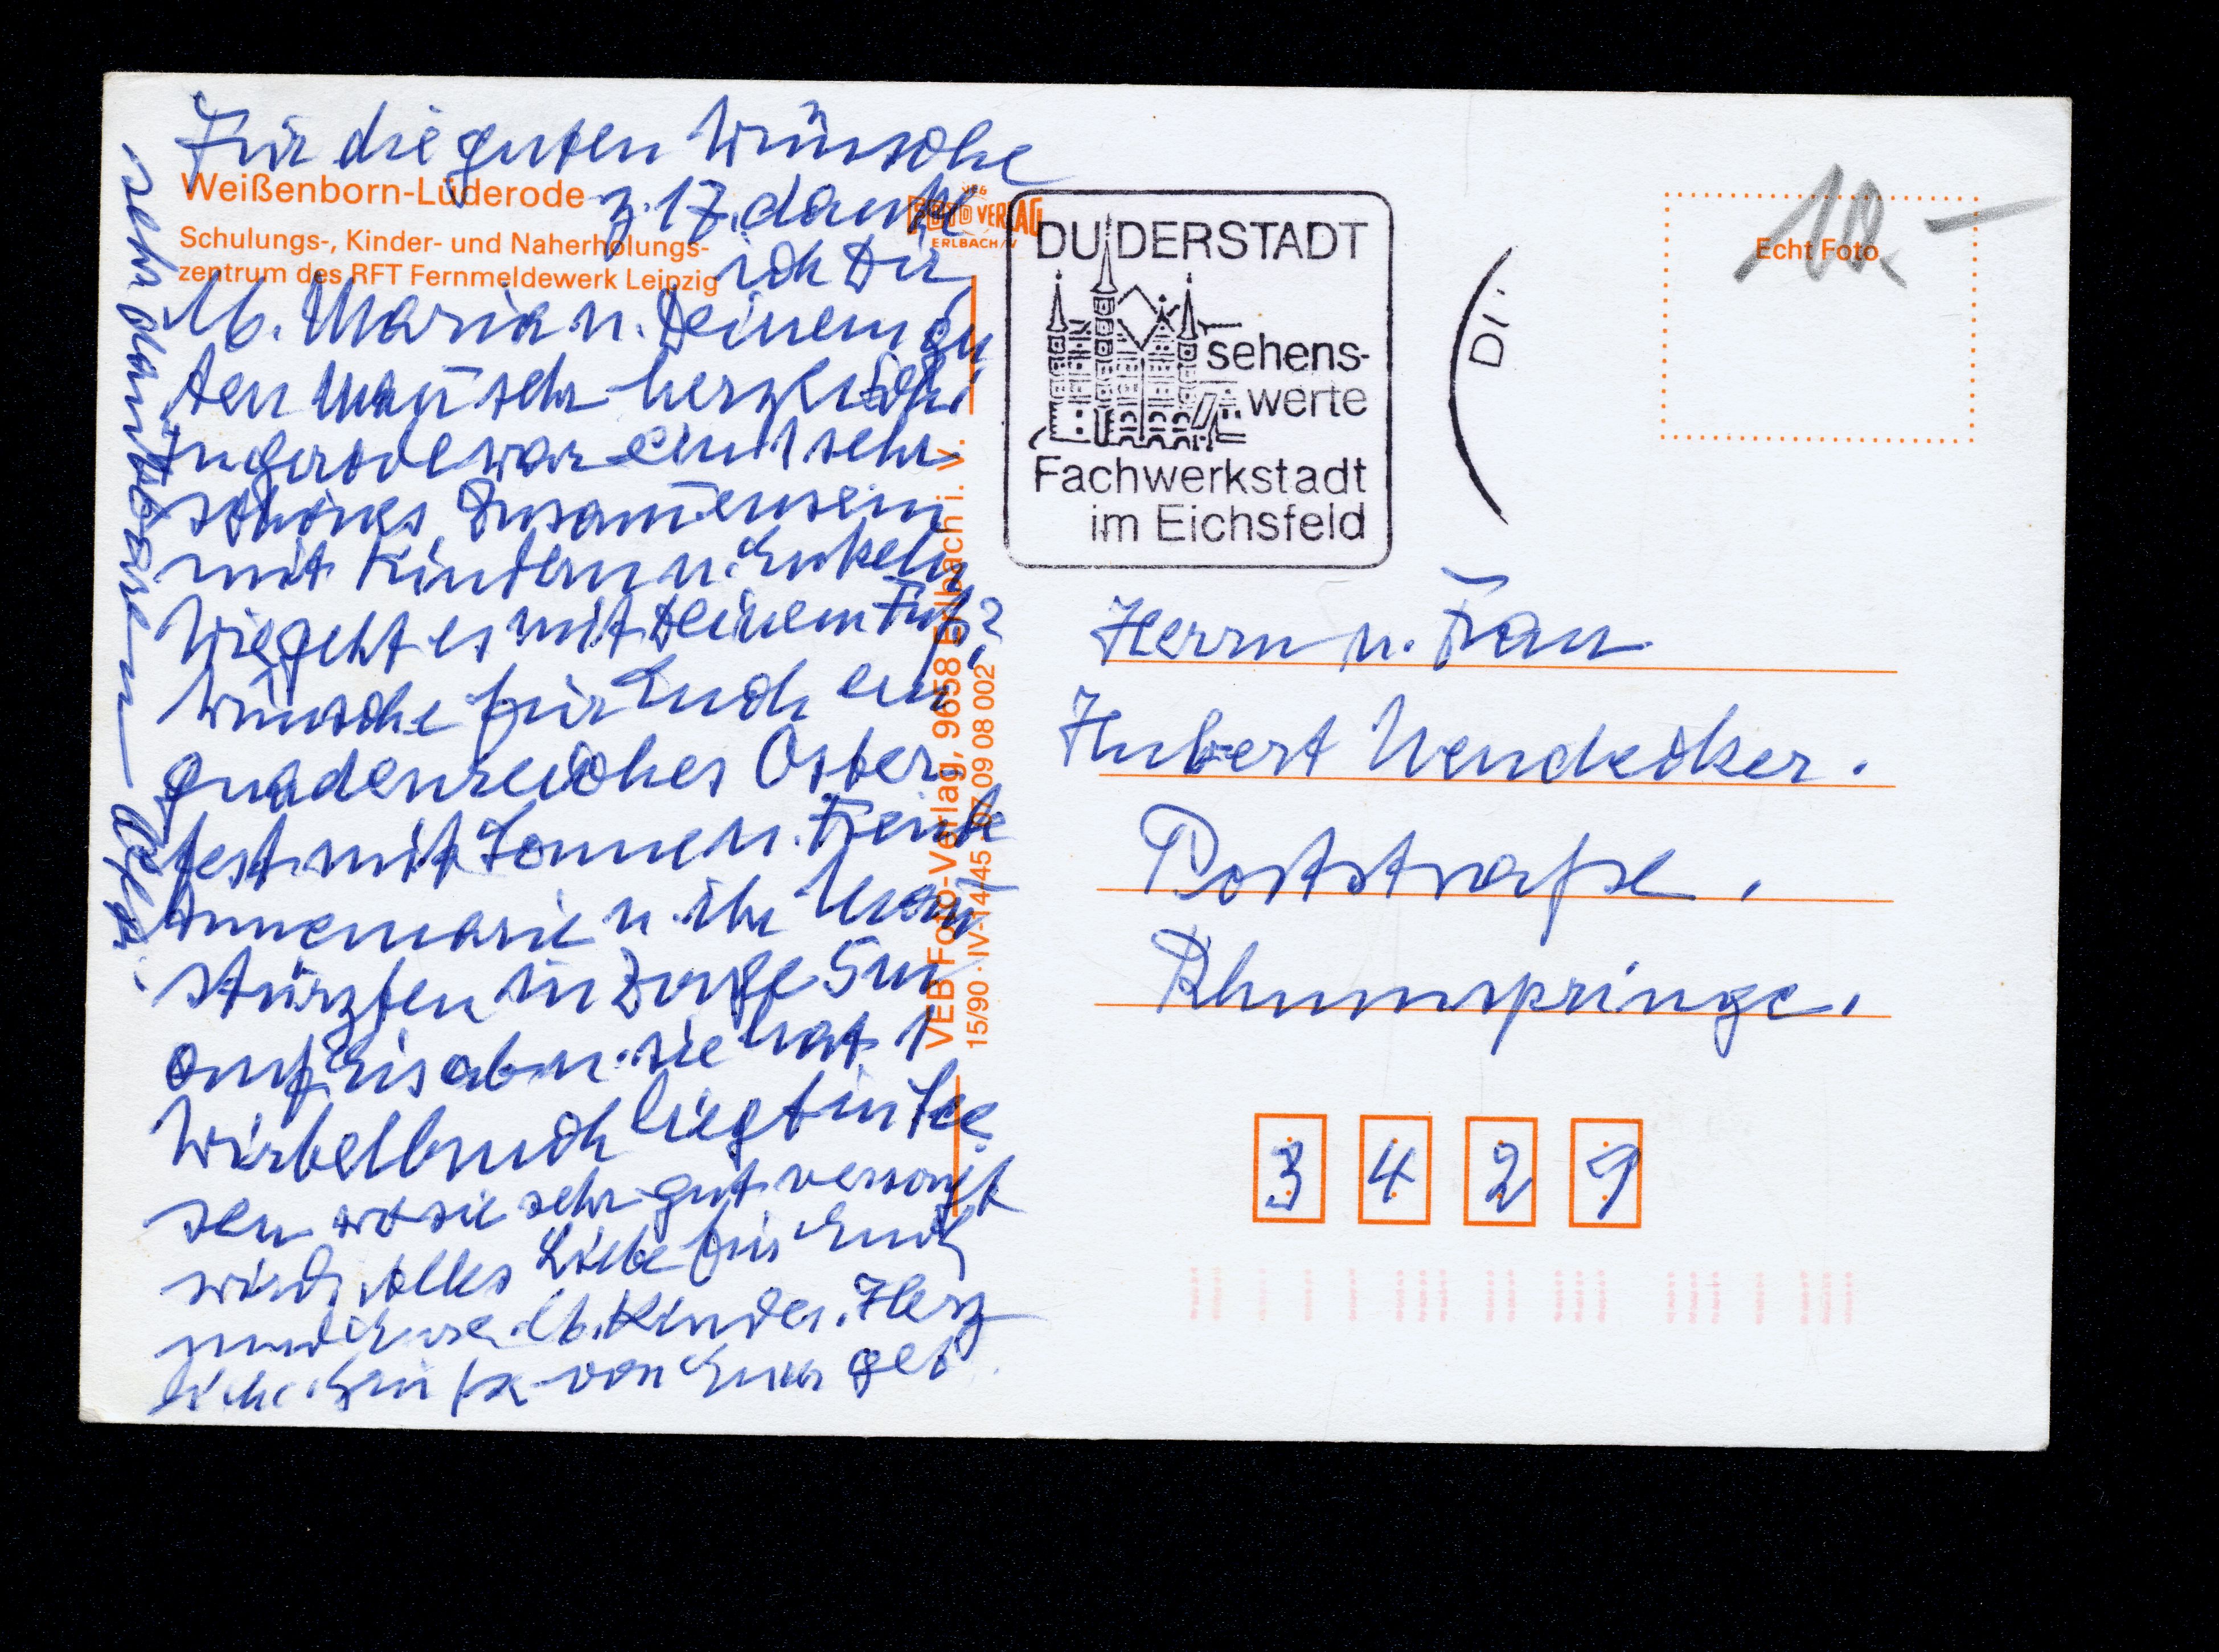 Für die guten Wünsche
z. 17. danke
ich Dir
lb. Maria u. Deinem gu
ten Mañ sehr herzlich.
Ingerode war ein sehr
schönes Zusam̄ensein
mit Kindern u. Enkeln
Wie geht es mit Deinem Fuß?
Wünsche für Euch ein
gnadenreiches Oster
fest mit Sonne u. Freude
Annemarie u. ihr Mañ
stürzten in Zorge 5 m
auf Eis ab u. sie hat 1
Wirbelbruch liegt in See
sen wo sie sehr gut versorgt
wird. Alles Liebe für Euch
und Eure lb. Kinder. Herz
liche Grüße von Eurer
sehr dankbaren
Weißenborn-Lüderode
Schulungs-, Kinder- und Naherholungs-
zentrum des RFT Fernmeldewerk Leipzig
VEB
FOTO VERLAG
ERLBACH/V
VEB Foto-Verlag, 9658 Erlbach i. V.
15/90 · IV-14-45 07 09 08 002
DUDERSTADT
sehens-
werte
Fachwerkstadt
im Eichsfeld
Echt Foto
10,-
Herrn u. Frau
Hubert
Poststraße,
Rhumspringe,
3 4 2 9